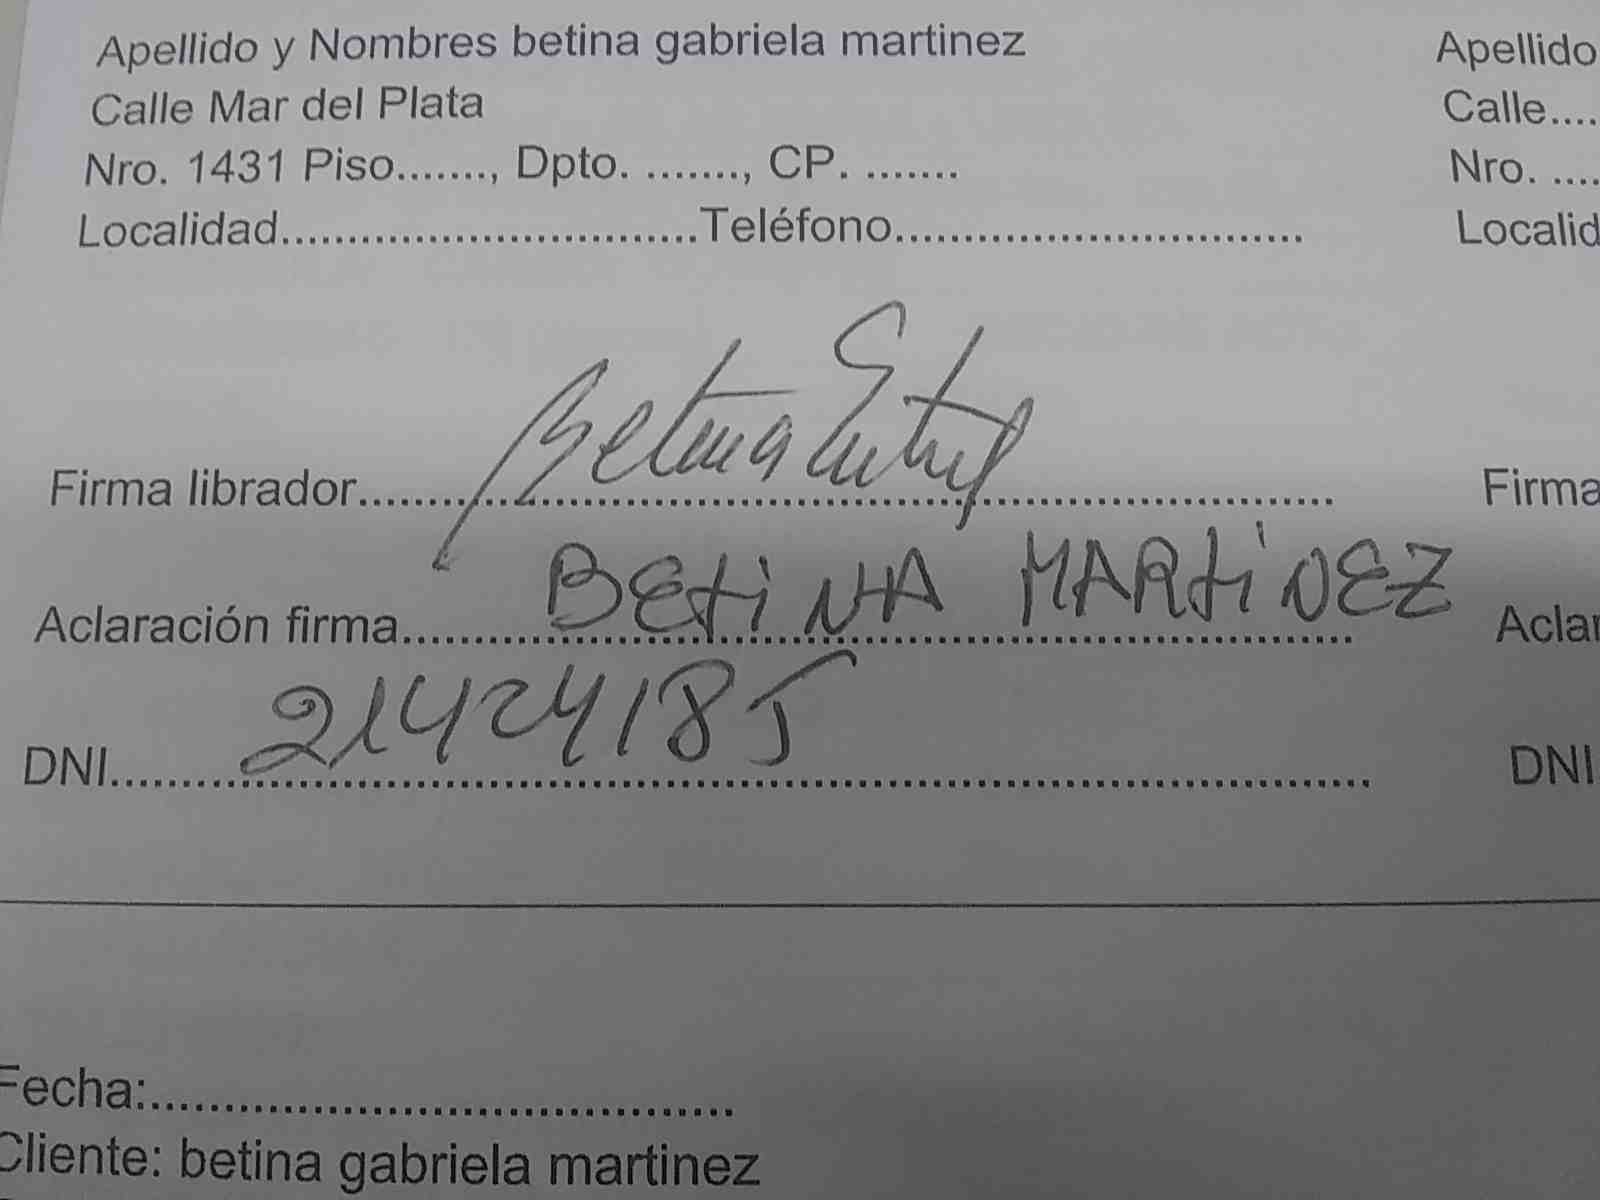 Apellido y Nombres betina gabriela martinez
Calle Mar del Plata
Nro. 1431 Piso......., Dpto. ......., CP. .......
Localidad...............................Teléfono..............................
Firma librador..................................................................
Aclaración firma...... BETINA MARTINEZ
DNI...... 21424185
Fecha:.......................................
Cliente: betina gabriela martinez
Apellido
Calle....
Nro. ....
Localid
Firma
Aclar
DNI